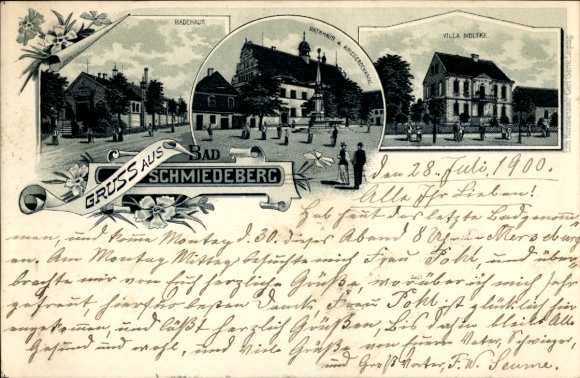 BADEHAUS
RATHHAUS u. KRIEGERDENKMAL
VILLA MOLTKE
GRUSS AUS
BAD
SCHMIEDEBERG
den 28. Juli, 1900.
Alle Ihr Lieben!
Hab heut das letzte Bad genom
men, und komme Montag d. 30. dieses Abend 8 Uhr in Mersebur
en. Am Montag Mittag besuchte mich Frau Pohl, und über
brachte mir von Euch herzliche Grüße, worüber ich mich sehr
gefreut, hierfür besten Dank, Frau Pohl ist glücklich hier
angekommen, und läßt herzlich Grüßen, Bis dahin bleibt Alle
Gesund und wohl, und viele Grüße von Eurem Vater, Schwieger,
und Großvater, F. W. Seume.